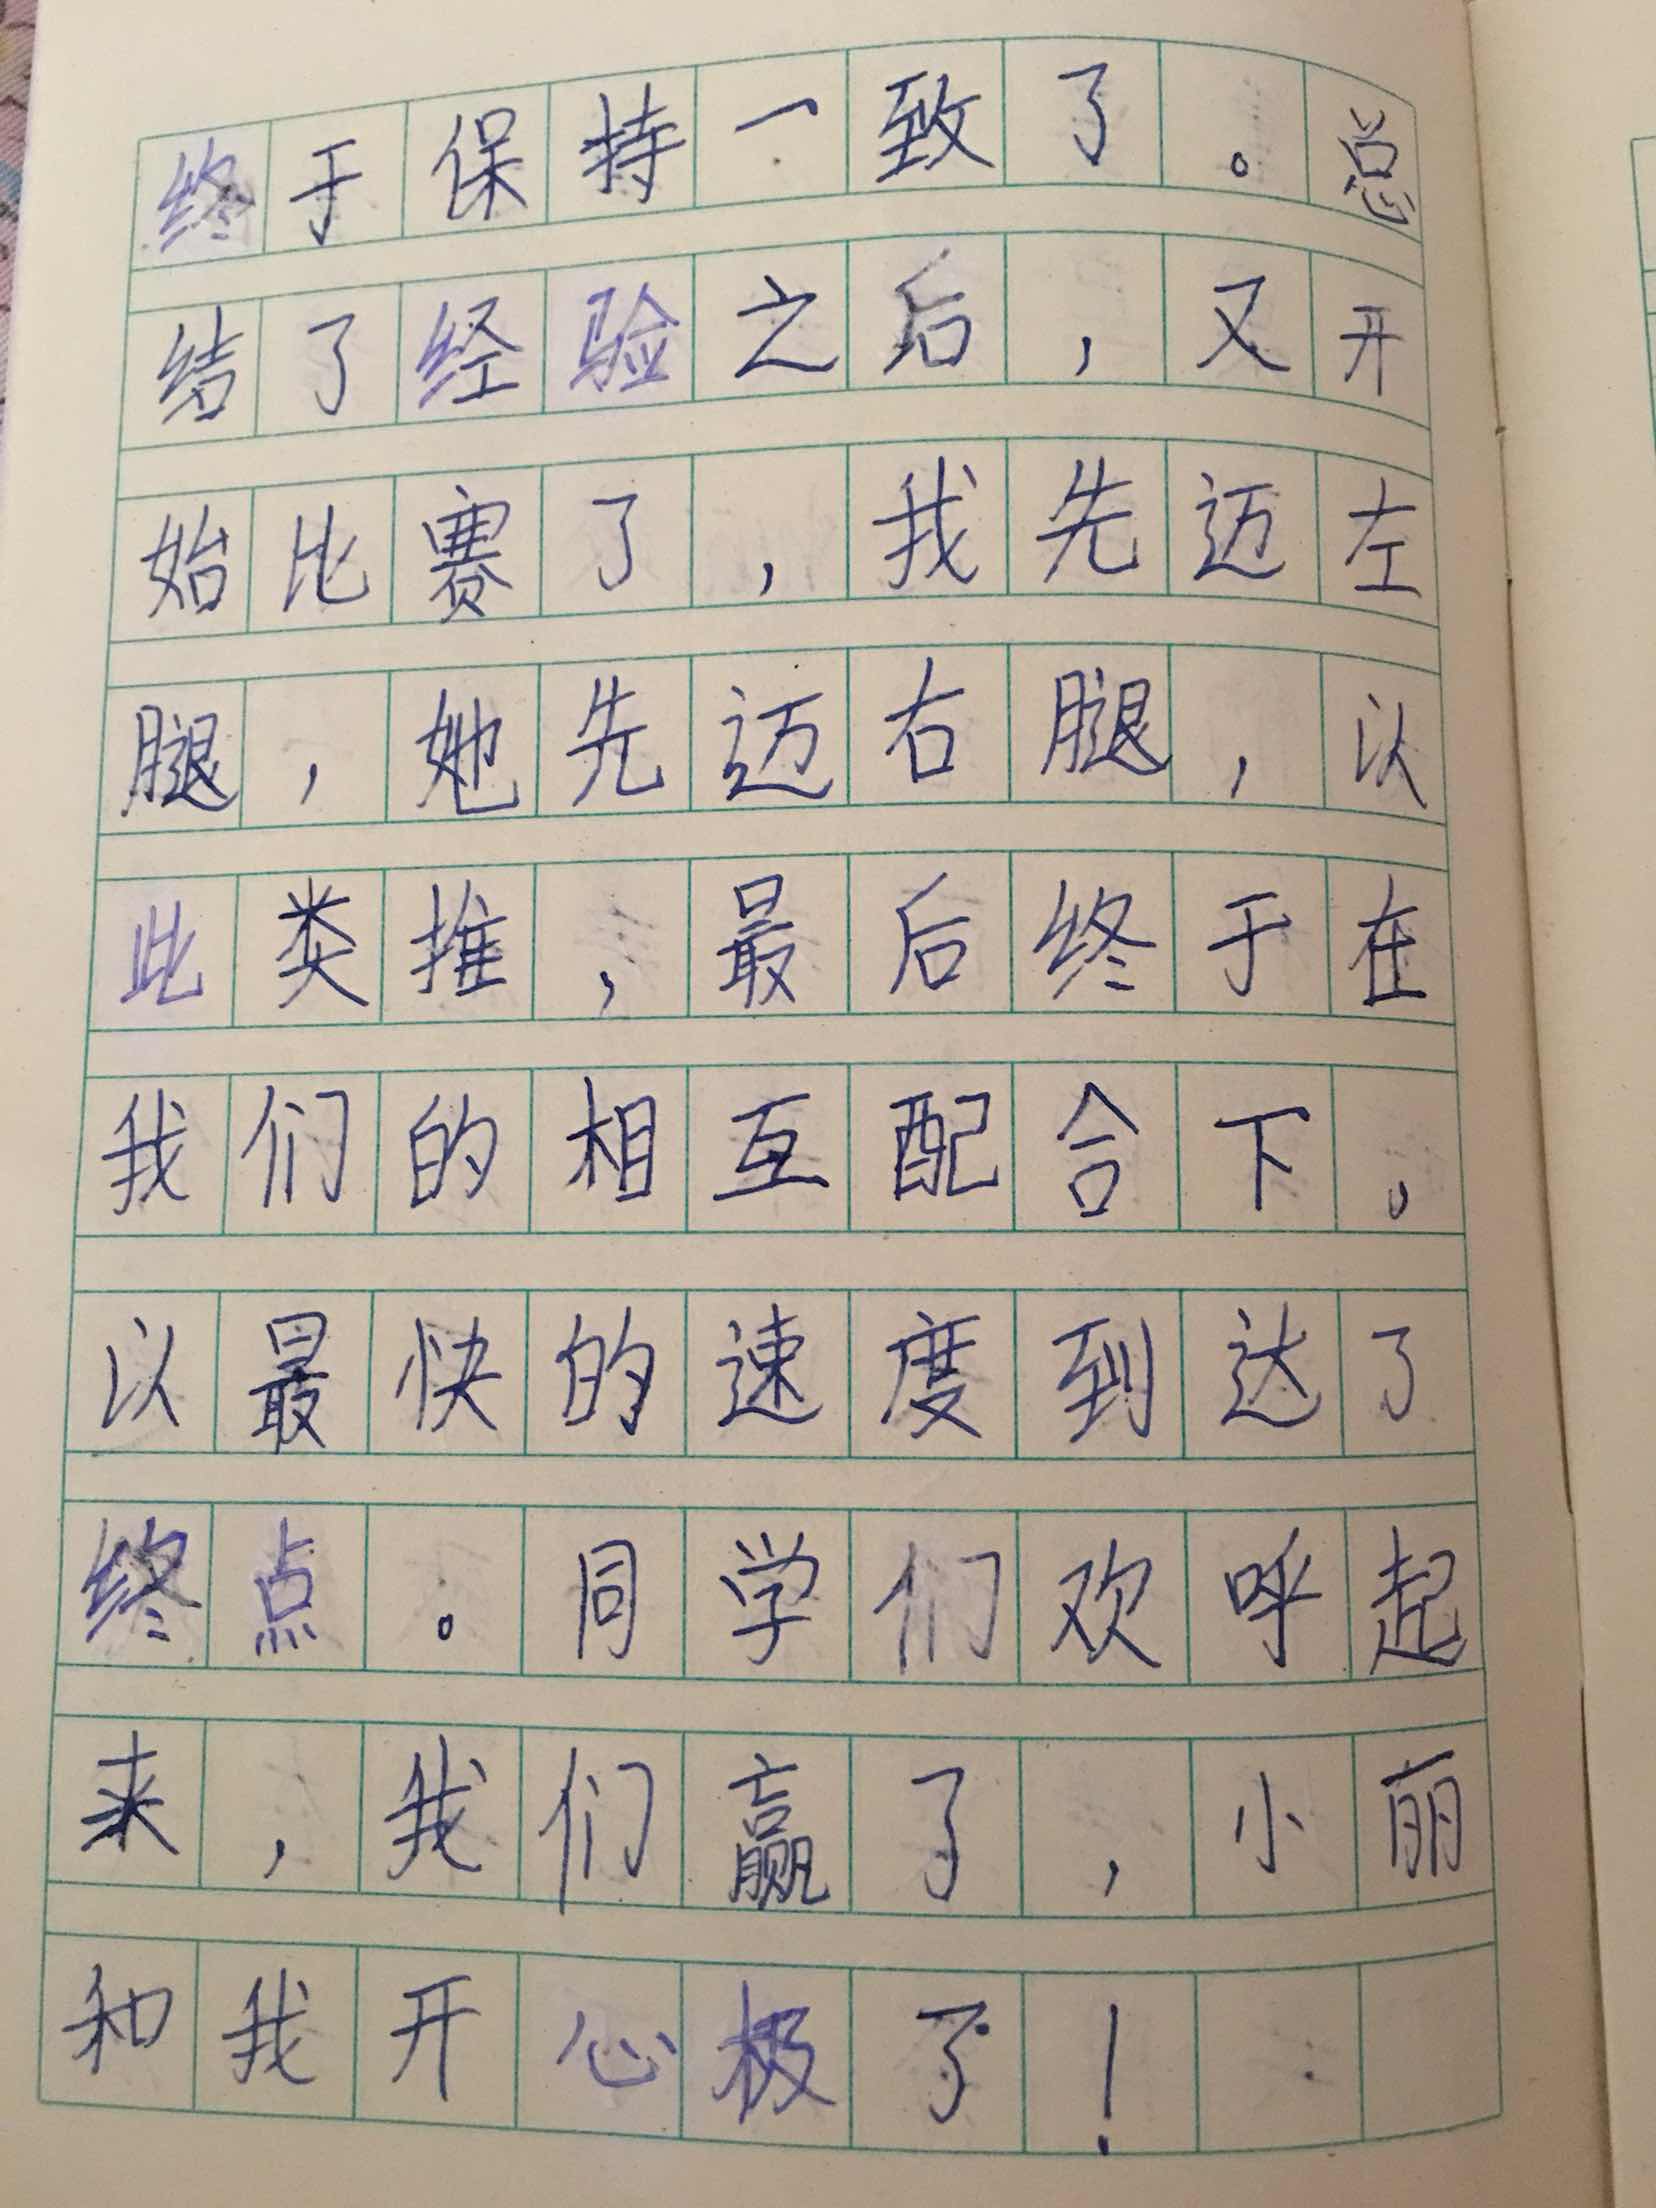 终于保持一致了。总
结了经验之后，又开
始比赛了，我先迈左
腿，她先迈右腿，以
此类推，最后终于在
我们的相互配合下。
以最快的速度到达了
终点。同学们欢呼起
来，我们赢了，小丽
和我开心极了！